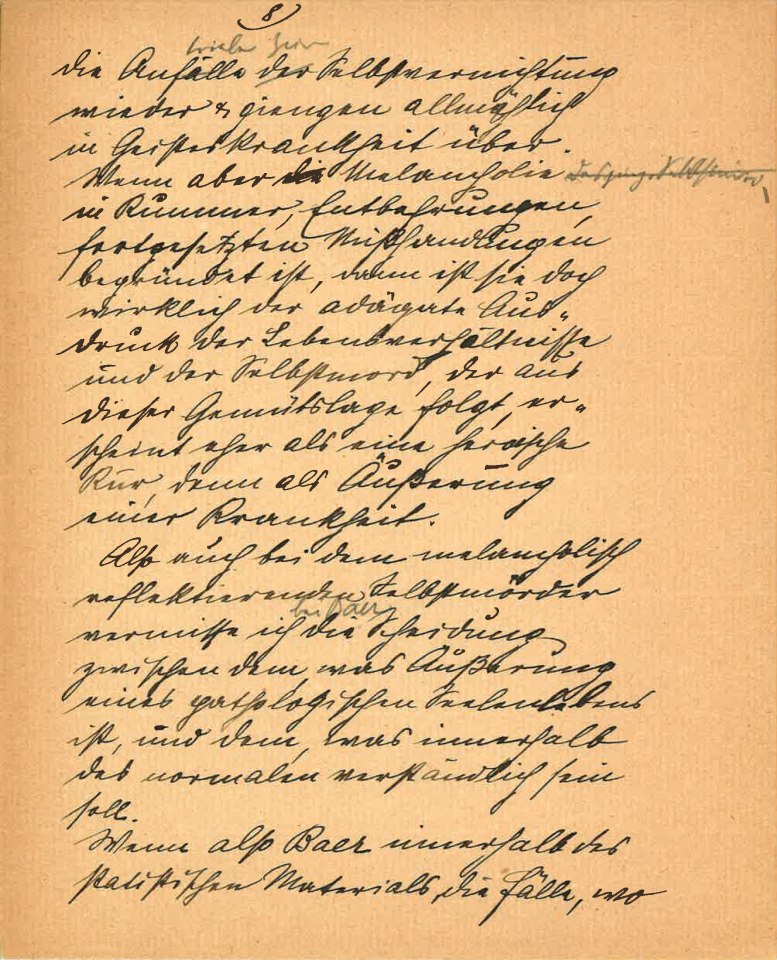 8
die Anfälle der Selbstvernichtung
wieder & giengen allmählich
in Geisteskrankheit über.
Wenn aber die Melancholie
in Kummer, Entbehrungen,
fortgesetzten Mißhandlungen
begründet ist, dann ist sie doch
wirklich der adäqate Aus„
druck der Lebensverhältnisse
und der Selbstmord, der aus
dieser Gemütslage folgt, er„
scheint eher als eine heroische
Kur, denn als Äußerung
einer Krankheit.
Also auch bei dem melancholisch
reflektierenden Selbstmörder
bei Baer
vermisse ich die Scheidung
zwischen dem, was Äußerung
eines pathologischen Seelenlebens
ist, und dem, was innerhalb
des normalen verständlich sein
soll.
Wenn also Baer innerhalb des
statistischen Materials, die Fälle, wo